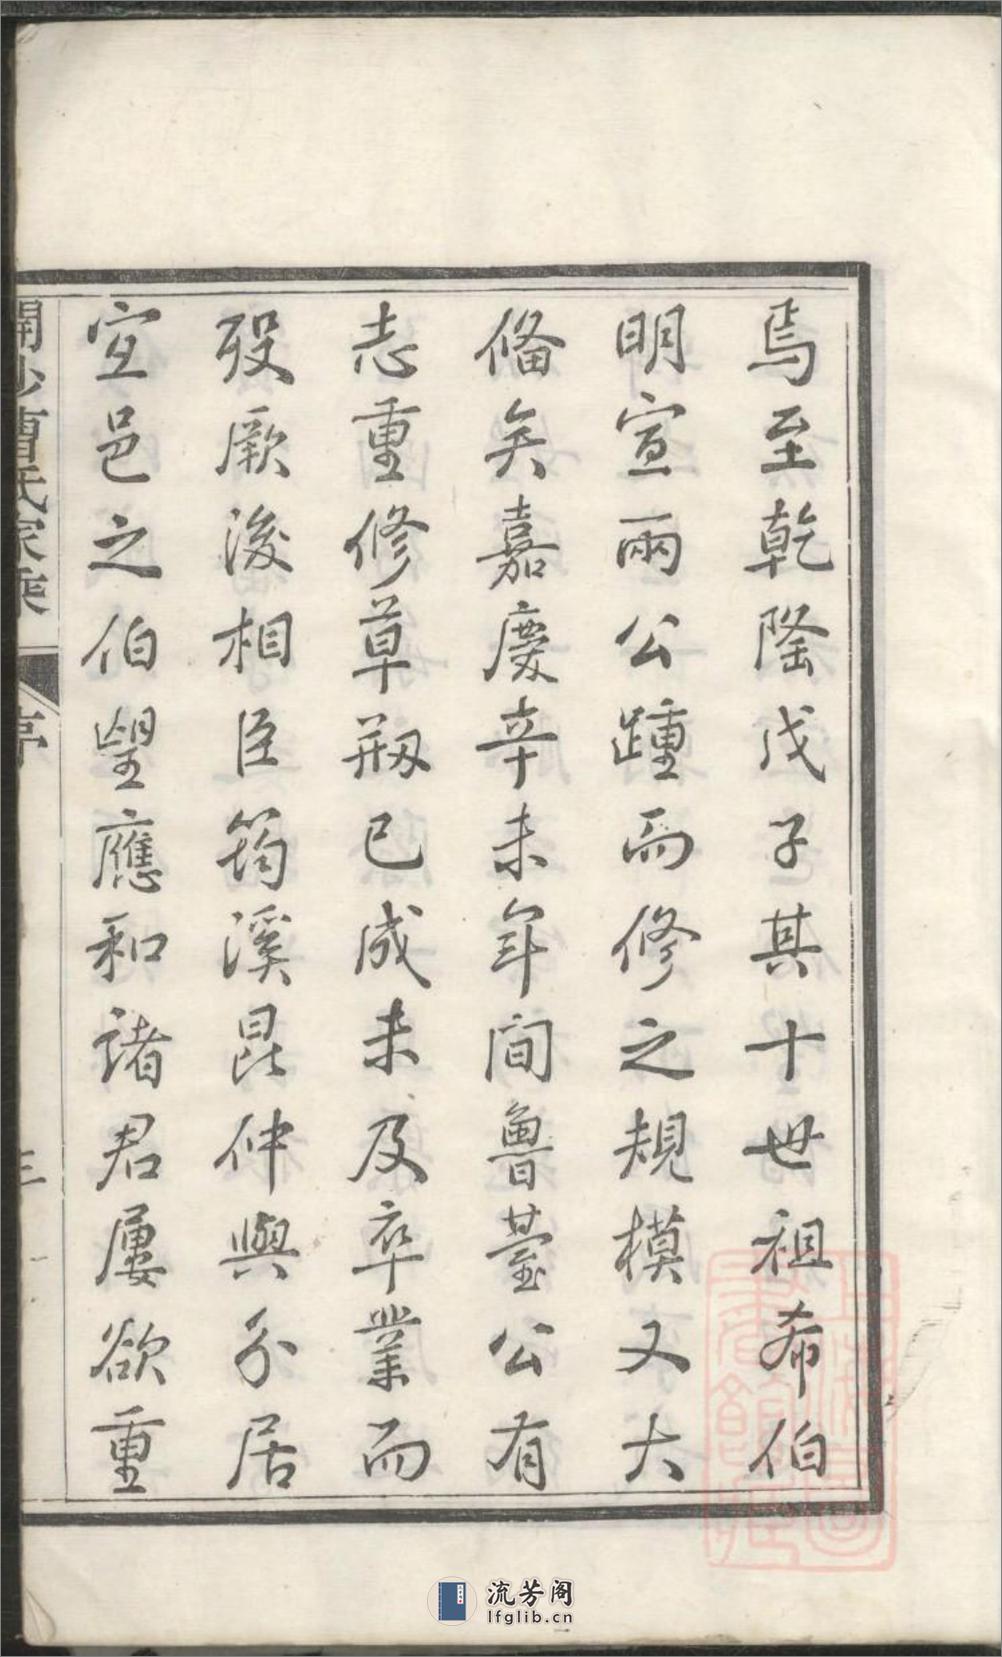 焉至乾隆戊子其十世祖希伯
明宣兩公踵而修之規模又大
備矣嘉慶辛未年間魯臺公有
志重修草剏已成未及卒業而
歿厥後相臣筠溪昆仲與分居
宜邑之伯望應和諸君屢欲重
開沙曹氏家乘
序
三
流芳阁
lfglib.cn